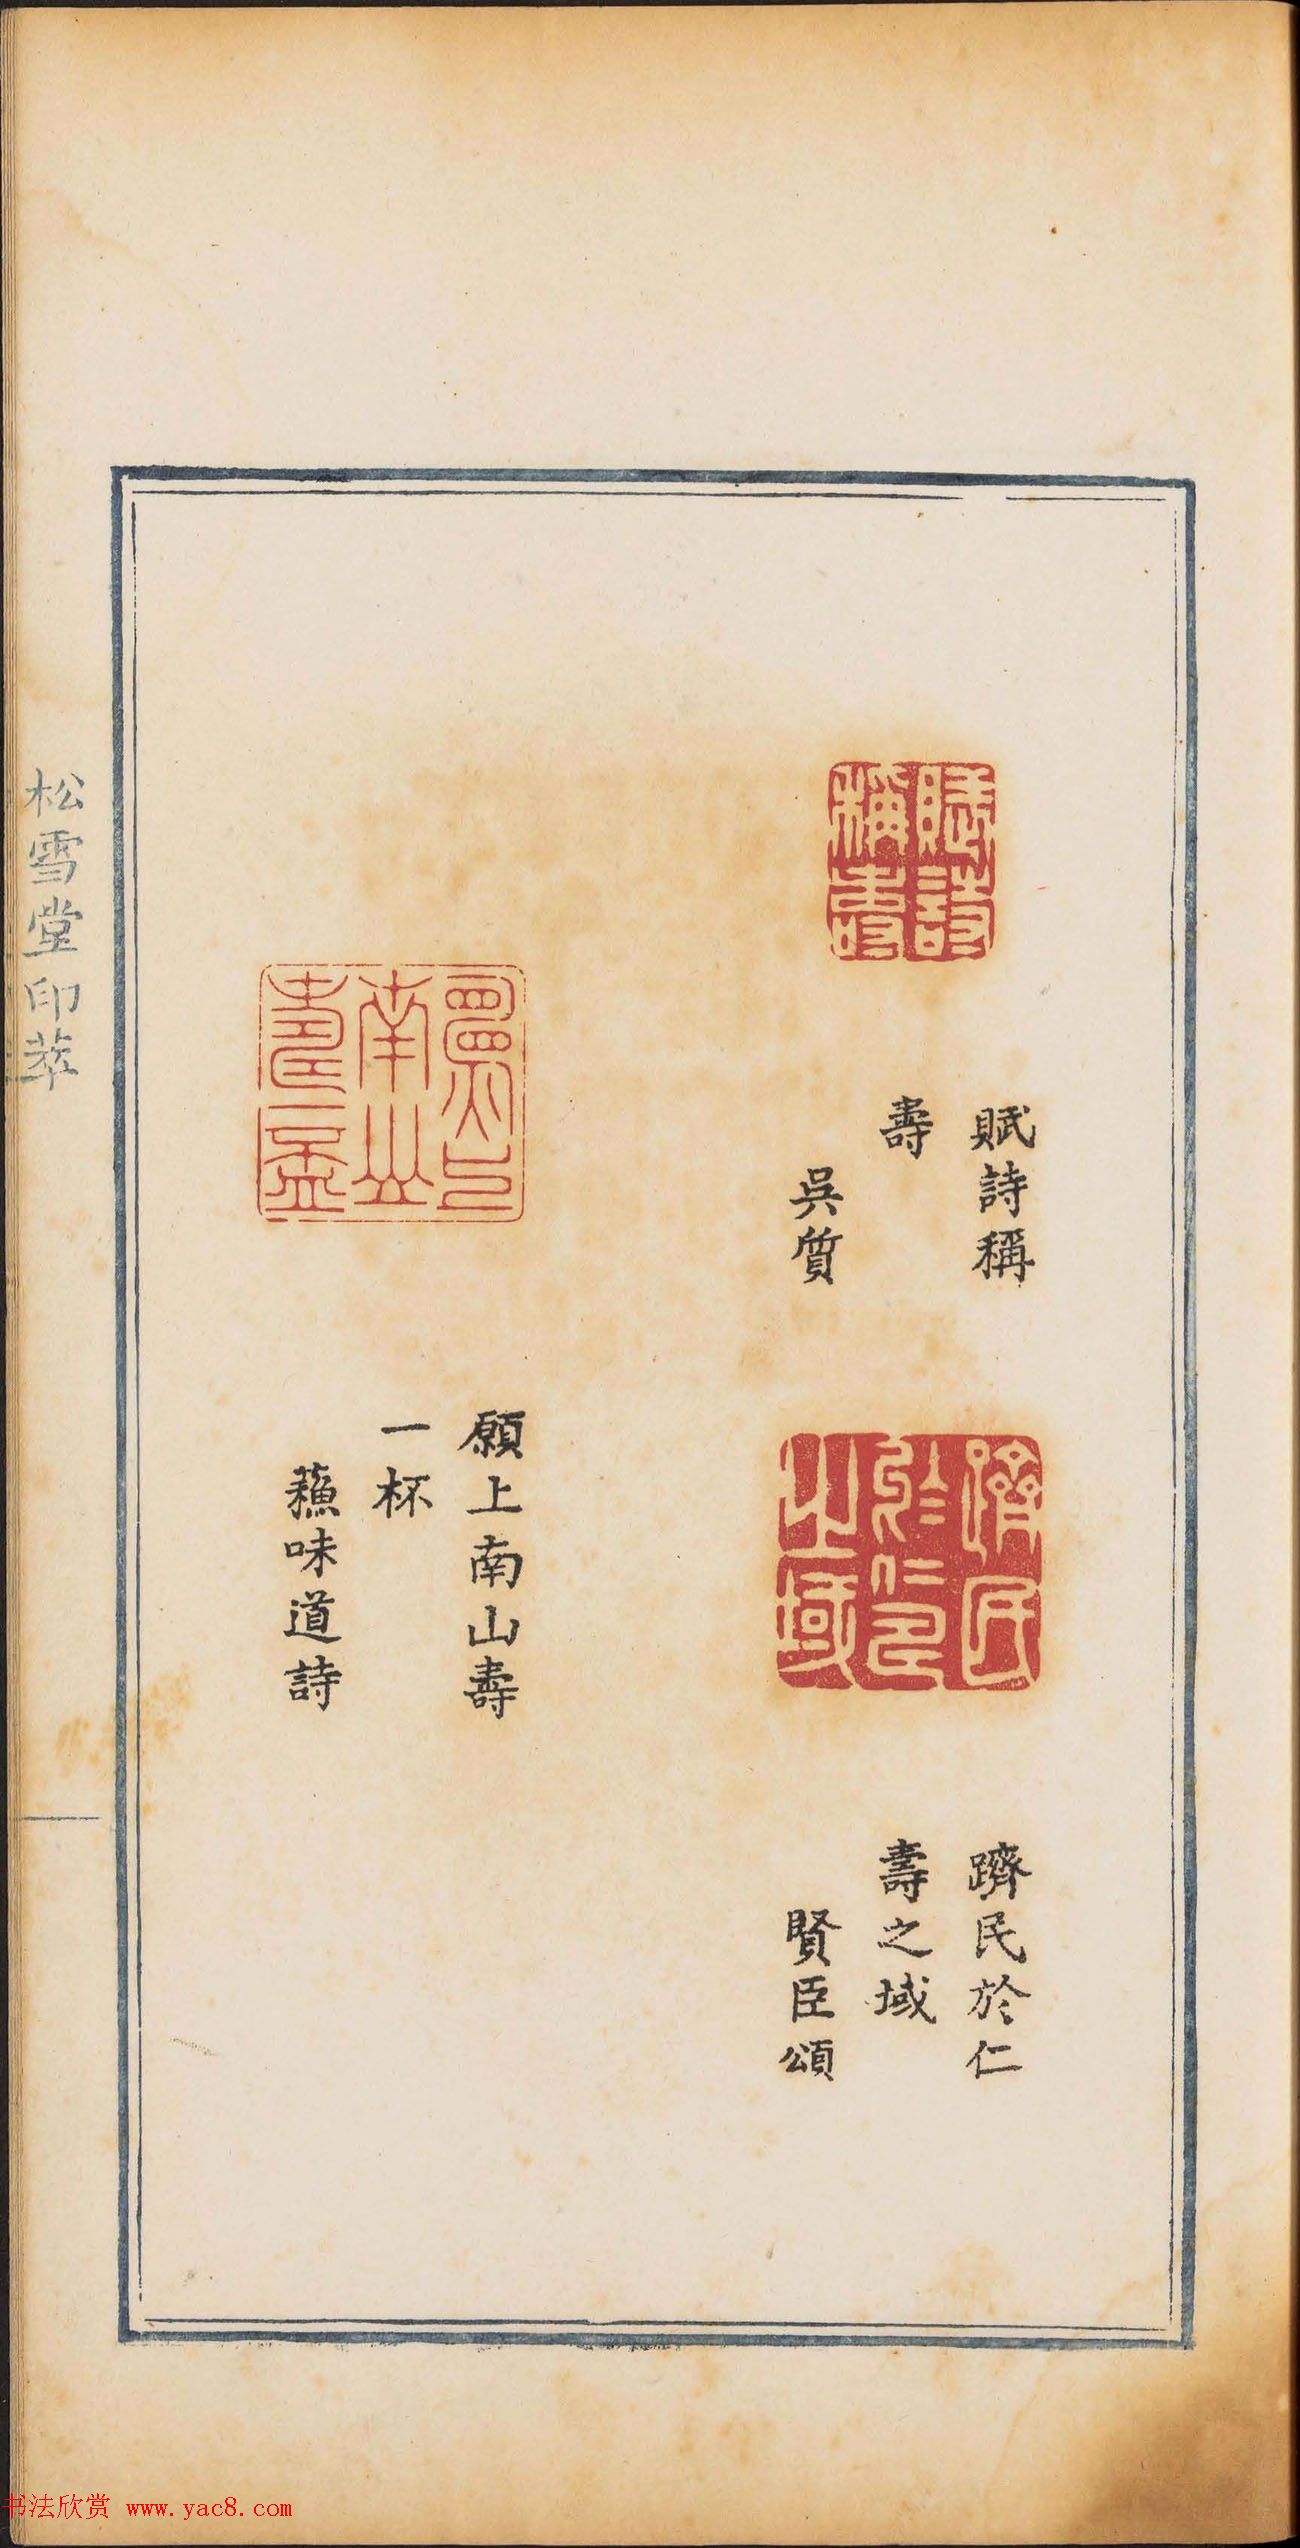 賦詩稱壽
賦詩稱
壽
吳質
躋民於仁壽之域
躋民於仁
壽之域
賢臣頌
願上南山壽一杯
願上南山壽
一杯
蘓味道詩
松雪堂印萃
书法欣赏 www.yac8.com